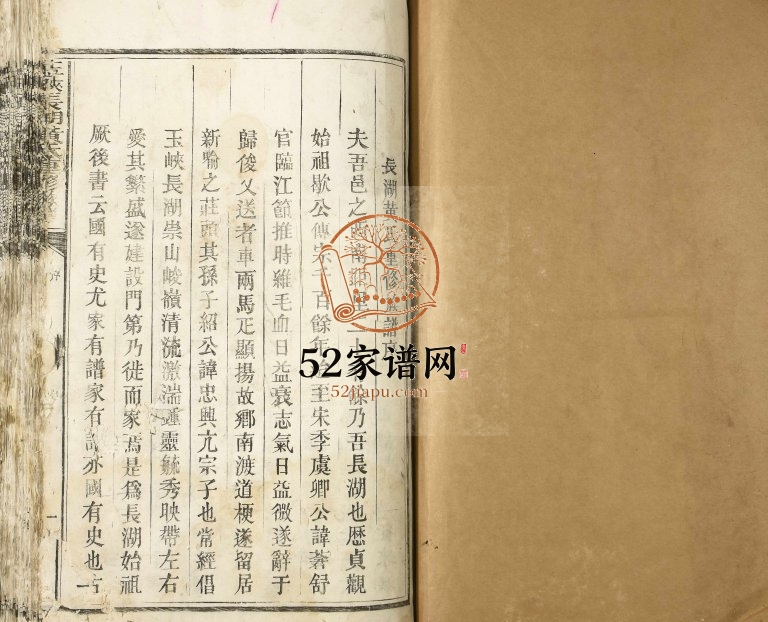 長湖黃氏重修族譜
夫吾邑之西南 乃吾長湖也歷貞觀
始祖歇公傳宗千百餘年 至宋季虞卿公諱 舒
官臨江節推時維毛血日益衰志氣日益微遂辭于
歸俊乂送者車兩馬疋顯揚故鄉南渡道梗遂留居
新喻之莊頭其孫子紹公諱忠興亢宗子也常經倡
玉峽長湖崇山峻嶺清流激湍 靈毓秀映帶左右
愛其繁盛遂建設門第乃徙而家焉是為長湖始祖
厥後書云國有史尤家有譜家有 亦國有史也
長湖黃氏
序
一
52家谱网
52jiapu.com